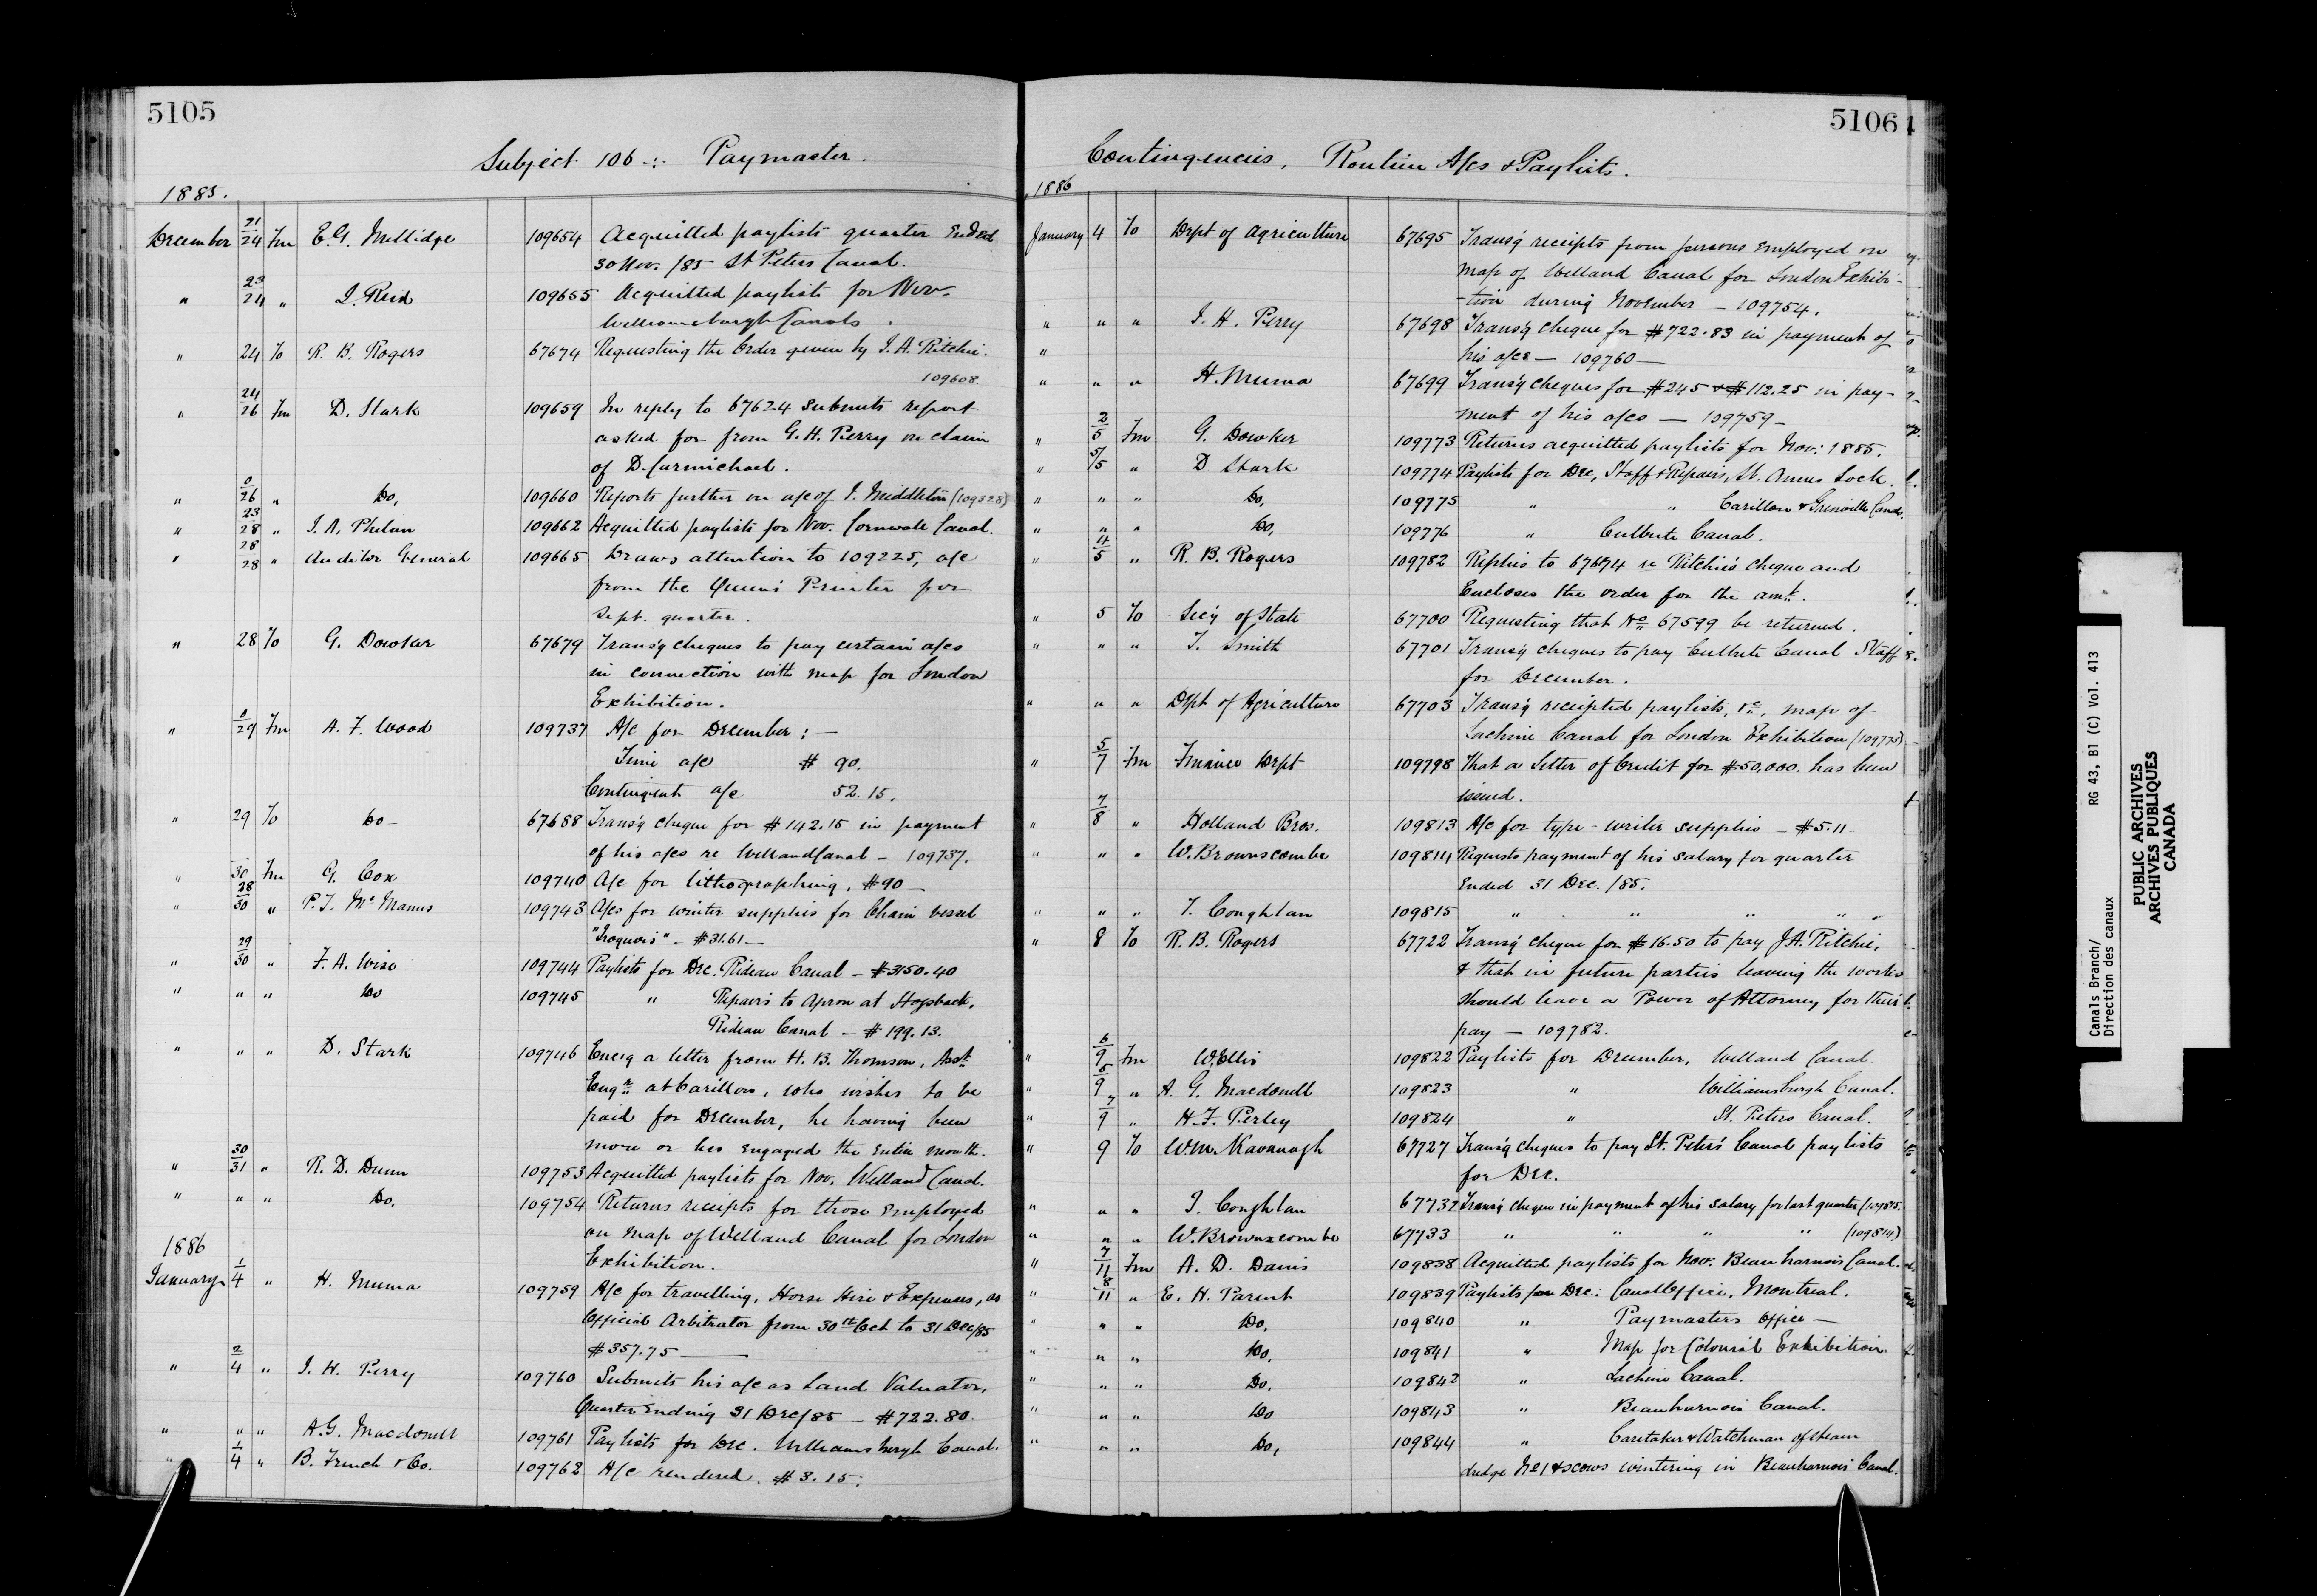 5105
Subject 106 -:- Paymaster.
1885.
December 21/24 Fm E. G. Millidge 109654 Acquitted paylists quarter Ended
30 Nov. /85 St Peters Canal.
" 23/24 " J. Reid 109655 Acquitted paylists for Nov.
Williamsburgh Canals.
" 24 To R. B. Rogers 67674 Requesting the Order given by J. A. Ritchie.
109608.
" 24/26 Fm D. Stark 109659 In reply to 67624 submits report
asked for from G. H. Perry on claim
of D. Carmichael.
" 0/26 " Do, 109660 Reports further on a/c of J. Middleton (109528)
" 23/28 " J. A. Phelan 109662 Acquitted paylists for Nov. Cornwall Canal.
" 28/28 " Auditor General 109665 Draws attention to 109225, a/c
from the Queen's Printer for
Sept. quarter.
" 28 To G. Dowker 67679 Trans'g cheques to pay certain a/cs
in connection with map for London
Exhibition.
" 0/29 Fm A. F. Wood 109737 A/c for December : —
Time a/c # 90.
Contingent a/c 52.15.
" 29 To Do - 67688 Trans'g cheque for # 142.15 in payment
of his a/cs re Welland Canal - 109737.
" 30 Fm G. Cox 109740 A/c for lithographing. #90 —
" 28/30 " P. J. McManus 109743 A/cs for winter supplies for Chain vessel
"Iroquois" - #31.61 —
" 29/30 " F. A. Wise 109744 Paylists for Dec. Rideau Canal - #3150.40
" " " Do 109745 " Repairs to Apron at Hogsback,
Rideau Canal - # 199.13.
" " " D. Stark 109746 Enc'g a letter from H. B. Thomson, Asst.
Engr. at Carillon, who wishes to be
paid for December, he having been
more or less engaged the Entire month.
" 30/31 " R. D. Dunn 109753 Acquitted paylists for Nov. Welland Canal.
" " " Do. 109754 Returns receipts for those Employed
on map of Welland Canal for London
Exhibition.
1886
January 1/4 " H. Muma 109759 A/c for travelling, Horse Hire & Expenses, as
Official Arbitrator from 30th Oct to 31 Dec/85
# 357.75 —
" 2/4 " J. H. Perry 109760 Submits his a/c as Land Valuator,
Quarter Ending 31 Dec/85 - # 722.80.
" " " A. G. Macdonell 109761 Paylists for Dec. Williamsburgh Canal.
" 1/4 " B. French & Co. 109762 A/c rendered. # 3.15.
5106
Contingencies, Routine A/cs & Paylists.
1886
January 4 To Dept of Agriculture 67695 Trans'g receipts from persons Employed on
map of Welland Canal for London Exhibi-
-tion during November - 109754.
" " " J. H. Perry 67698 Trans'g cheque for #722.83 in payment of
" his a/cs — 109760 —
" " " H. Muma 67699 Trans'g Cheques for #245 & #112.25 in pay-
ment of his a/cs — 109759 -
" 2/5 Fm G. Dowker 109773 Returns acquitted paylists for Nov: 1885.
" 5/5 " D Stark 109774 Paylists for Dec, Staff & Repairs, St. Annes Lock.
" " " Do, 109775 " " Carillon & Grenville Canals.
" " " Do, 109776 " Culbute Canal.
" 4/5 " R. B. Rogers 109782 Replies to 67674 re Ritchie's cheque and
Encloses the order for the amt.
" 5 To Sec'y of State 67700 Requesting that No 67599 be returned.
" " " T. Smith 67701 Trans'g cheques to pay Culbute Canal Staff
for December.
" " " Dept of Agriculture 67703 Trans'g receipted paylists, &c, map of
Lachine Canal for London Exhibition (109773)
" 5/7 Fm Finance Dept 109798 That a Letter of Credit for #50,000. has been
issued.
" 7/8 " Holland Bros. 109813 A/c for type-writer supplies - #5.11 -
" " " W. Brownscombe 109814 Requests payment of his salary for quarter
Ended 31 Dec. /85.
" " " T. Coughlan 109815 " " " " "
" 8 To R. B. Rogers 67722 Trans'g cheque for # 16.50 to pay J. A. Ritchie,
& that in future parties leaving the works
should leave a Power of Attorney for their
pay — 109782.
" 6/9 Fm W. Ellis 109822 Paylists for December, Welland Canal.
" 5/9 " A. G. Macdonell 109823 " Williamsburgh Canal.
" 7/9 " H. F. Perley 109824 " St. Peters Canal.
" 9 To Wm. Kavanagh 67727 Trans'g cheques to pay St. Peter's Canal paylists
for Dec.
" " " J. Coughlan 67732 Trans'g cheque in payment of his salary for last quarter (109815.
" " " W. Brownscombe 67733 " " " " (109814)
" 7/11 Fm A. D. Danis 109838 Acquitted paylists for Nov: Beauharnois Canal.
" 8/11 " E. H. Parent 109839 Paylists for Dec: Canal Office, Montreal.
" " " Do, 109840 " Paymasters Office —
" " " Do, 109841 " Map for Colonial Exhibition.
" " " Do, 109842 " Lachine Canal.
" " " Do 109843 " Beauharnois Canal.
" " " Do, 109844 " Caretaker & Watchman of steam
dredge No 1 & scows wintering in Beauharnois Canal.
Canals Branch/ RG 43, B1 (C) Vol. 413
Direction des canaux
PUBLIC ARCHIVES
ARCHIVES PUBLIQUES
CANADA